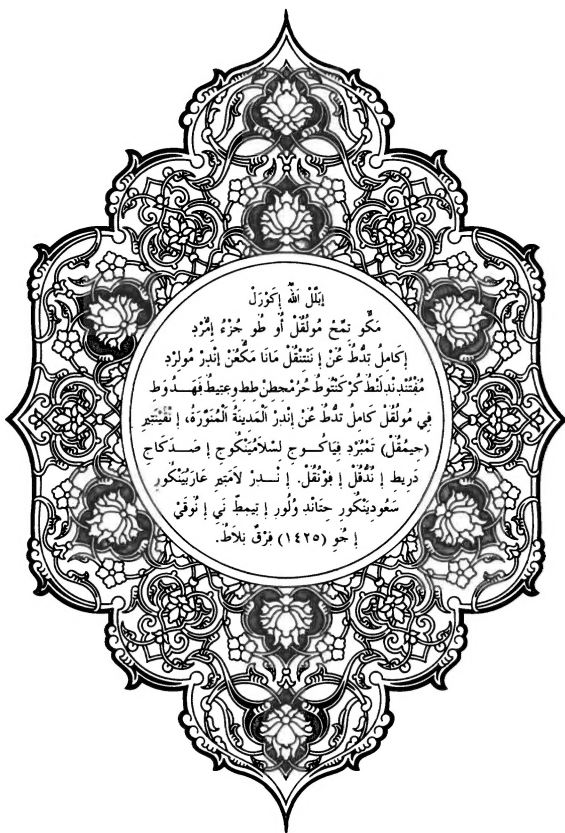 إبَلَلْ اللّٰهُ إكَوْرَلْ
مَكَّو نَمَّحْ مُولُقُلْ أُو طُو جُزْءُ إمَّرْدِ
إكَامِلُ تِدُّطُ عَنْ إنَنْتَنْقُلْ مَانَا مَكُّعُنْ إنْدِرْ مُولَرْدِ
حُرُمْجطن ططِ وعِتِيطُ فِهَدُ وَطِ
فِي مُولُقُلْ كَامِلُ تِدُّطُ عَنْ إنْدِرْ اَلْمَدِينَةُ الْمُنَوَّرَةُ، إ
(جِيمُقُلْ) نَمْبُرْدِ فِيَاكُوجِ لِسْلَامُيِنْكُوجِ إ صَدَكَاجِ
دَرِيطِ إ نُدُّقُلْ إ فِوْنُقُلْ. إنْدِرْ لَامَتِيرِ عَارَبُيِنْكُورِ
سَعُودِيَنْكُورِ حِتَانْدِ وُلُورِ إ تِيمِطِ نِي إ نُوقَيْ
إ جُوِ (١٤٢٥) فِرْقٌ بَلَاطُ.